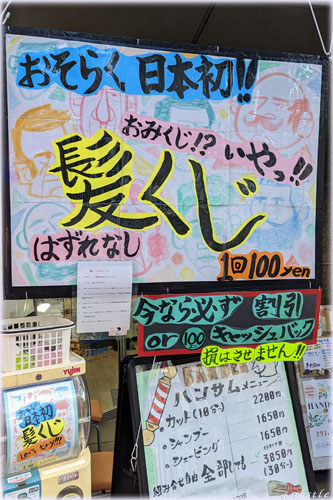 おそらく 日本初!!
おみくじ!? いやっ!!
髪くじ
はずれなし
1回100yen
今なら必ず 割引
or 100 キャッシュバック
損はさせません!!
YUJIN
おそらく
日本初
髪くじ
BARBER
ハンサムメニュー
カット(10分) 2200円
・シャンプー 1650円
・シェービング 1650円
組み合せ自由 全部しても 3850円
(30分)